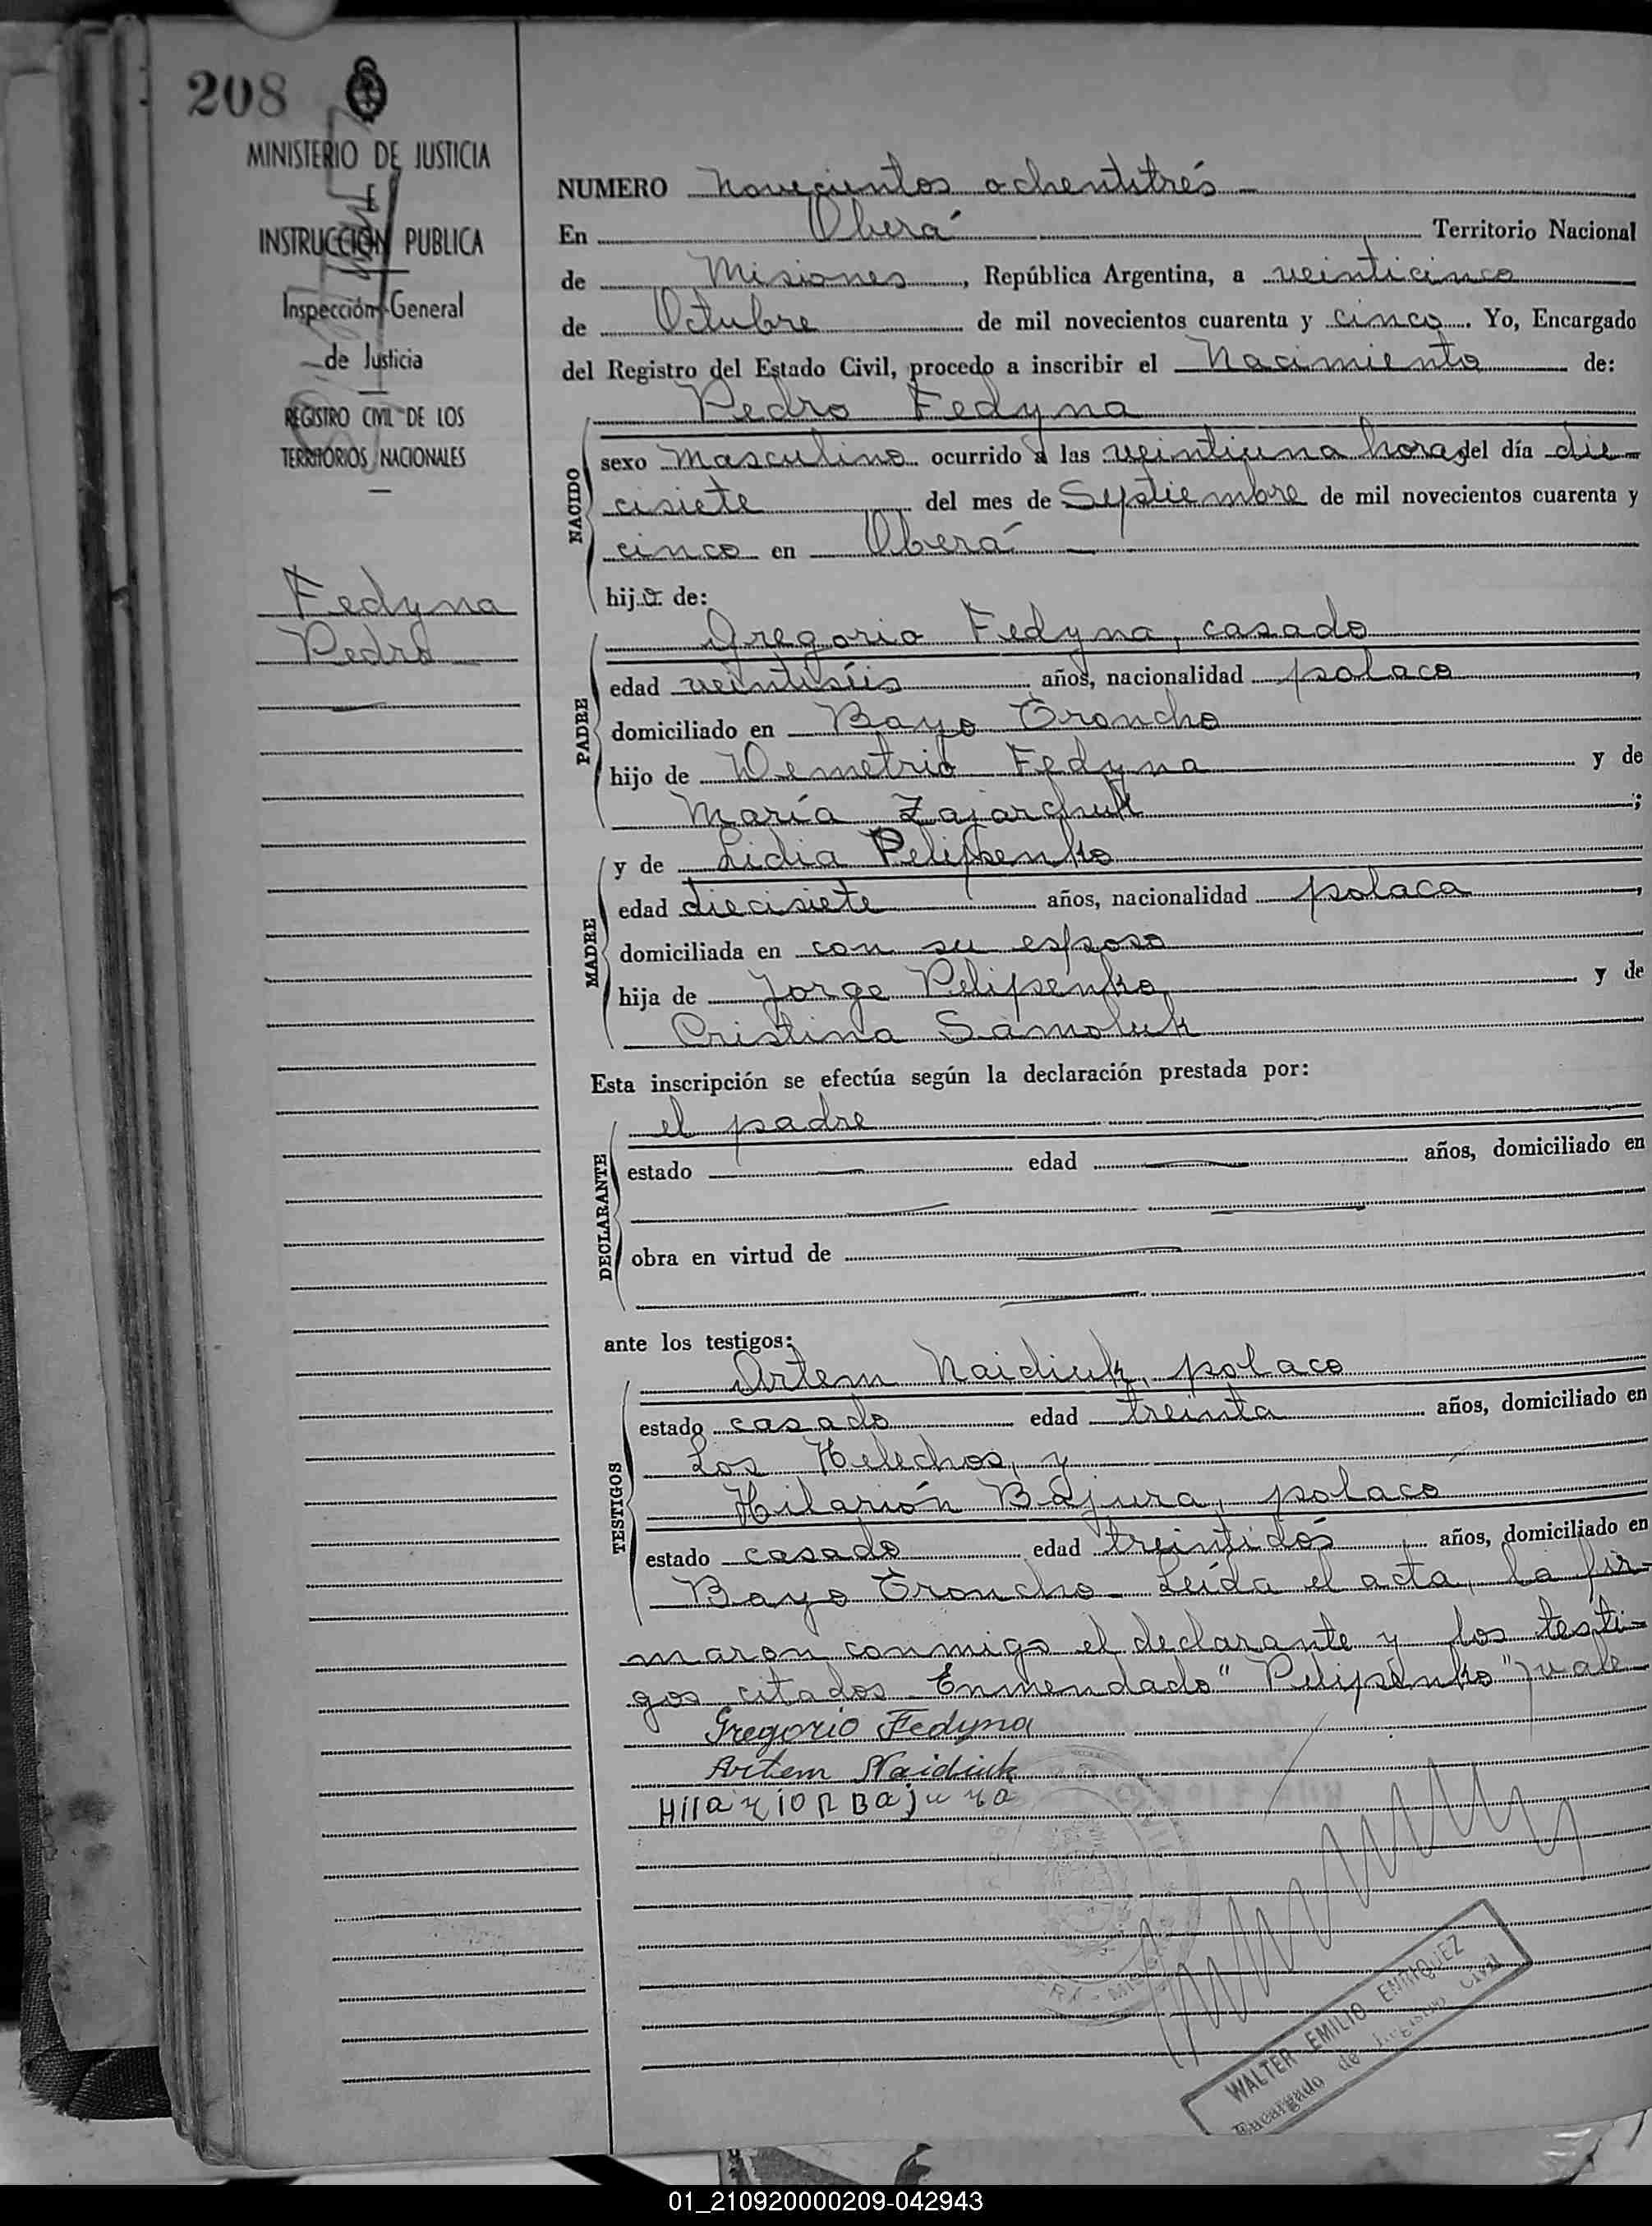 208
MINISTERIO DE JUSTICIA
E
INSTRUCCION PUBLICA
Inspección General
de Justicia
REGISTRO CIVIL DE LOS
TERRITORIOS NACIONALES
Fedyna
Pedro
NUMERO novecientos ochentitrés
En Oberá Territorio Nacional
de Misiones, República Argentina, a veinticinco
de Octubre de mil novecientos cuarenta y cinco. Yo, Encargado
del Registro del Estado Civil, procedo a inscribir el Nacimiento de:
Pedro Fedyna
NACIDO
sexo masculino ocurrido a las veintiuna horas del día die-
cisiete del mes de Septiembre de mil novecientos cuarenta y
cinco en Oberá
hijo de:
PADRE
Gregorio Fedyna, casado
edad veintiséis años, nacionalidad polaco,
domiciliado en Bayo Troncho
hijo de Demetrio Fedyna y de
María Zajarchuk;
MADRE
y de Lidia Pelipenko
edad diecisiete años, nacionalidad polaca,
domiciliada en con su esposo
hija de Jorge Pelipenko y de
Cristina Samoluk
Esta inscripción se efectúa según la declaración prestada por:
DECLARANTE
el padre
estado — edad — años, domiciliado en
obra en virtud de —
ante los testigos:
TESTIGOS
Artem Naidiuk, polaco
estado casado edad treinta años, domiciliado en
Los Helechos, y
Hilarión Bajura, polaco
estado casado edad treintidós años, domiciliado en
Bayo Troncho - Leída el acta, la fir-
maron conmigo el declarante y los testi-
gos citados - Enmendado "Pelipenko" vale
Gregorio Fedyna
Artem Naidiuk
Hilarion Bajura
WALTER EMILIO ENRIQUEZ
Encargado de Registro Civil
01_210920000209-042943